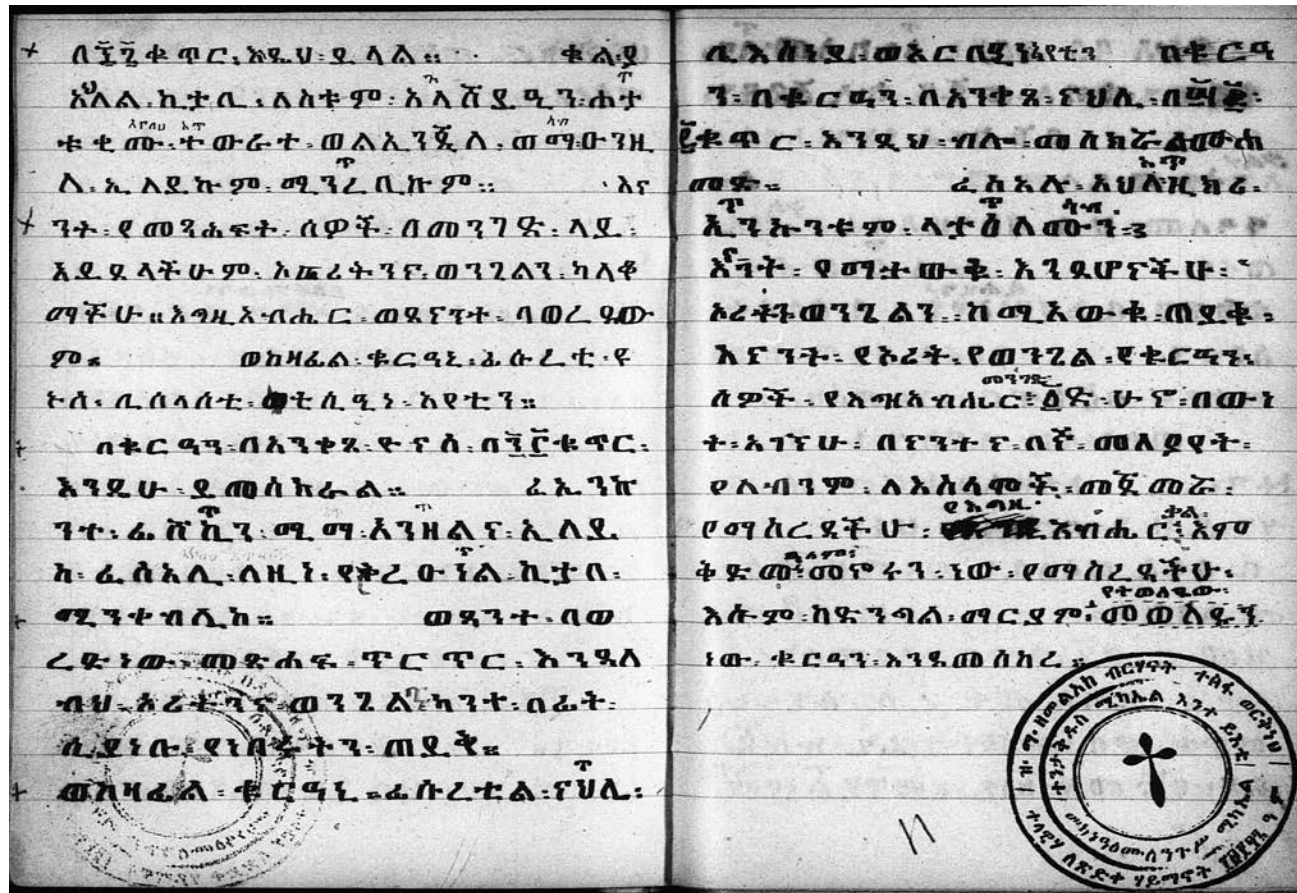 በ፷፯ቁጥር፡እዲህ፡ይላል። ቁል፡ያ
አህለል፡ኪታቢ፡ለስቱም፡አላሸይዒን፡ሐታ
ቱቂሙ፡ተውራተ፡ወልኢንጂለ፡ወማ፡ዑንዚ
ለ፡ኢለይኩም፡ሚንረቢኩም። እና
ንት፡የመጻሕፍት፡ሰዎች፡በመንገድ፡ላይ፡
አይደላችሁም፡ኦሪትንና፡ወንጌልን፡ካለቆ
ማችሁ። እግዚአብሔር፡ወደናንተ፡ባወረዳው
ም። ወከዛፊል፡ቁርዓኒ፡ፊሱረቲ፡ዩ
ኑስ፡ቢሰላሰቲ፡ወቲሲዒነ፡አየቲን።
በቁርዓን፡በአንቀጸ፡ዮናስ፡በ፺፫ቁጥር፡
እንዲሁ፡ይመሰክራል። ፈኢንኩ
ንተ፡ፊሸኪን፡ሚማ፡አንዘልና፡ኢለይ
ከ፡ፈስአሊ፡ለዚነ፡የቅረዑነል፡ኪታበ፡
ሚንቀብሊከ። ወዳንተ፡በወ
ረድነው፡መጽሐፍ፡ጥርጥር፡እንዳለ
ብህ፡ኦሪቱንና፡ወንጌል፡ካንተ፡በፊት፡
ሲያነቡ፡የነበሩትን፡ጠይቅ።
ወከዛፊል፡ቁርዓኒ፡ፊሱረቲል፡ናህሊ፡
ቢእስነይ፡ወአርበዒን፡አየቲን በቁርዓ
ን፡በቁርዓን፡በአንቀጸ፡ናህሊ፡በ፵፪፡
ቁጥር፡እንዲህ፡ብሎ፡መስክሯል፡ሙሐ
መድ። ፈስአሉ፡አህለዚክሪ፡
ኢንኩንቱም፡ላተዕለሙን፡
እናንት፡የማታውቁ፡እንደሆናችሁ፡
ኦሪቱን፡ወንጌልን፡ከሚአውቁ፡ጠይቁ፡
እናንት፡የኦሪት፡የወንጌል፡የቁርዓን፡
ሰዎች፡የእግዚአብሔር፡መንገድ፡ሁኖ፡በውነ
ት፡አገኘሁ፡በናንተና፡በኛ፡መለያየት፡
የሌብንም፡ለእስላሞች፡መጀመሯ፡
የማስረዳችሁ፡የእግዚአብሔር፡ቃል፡እም
ቅድመ፡ዓለም፡መኖሩን፡ነው፡የማስረዳችሁ፡
እሱም፡ከድንግል፡ማርያም፡የተወለዴው፡መወለዱን
ነው፡ቁርዓን፡እንዲመሰከረ።